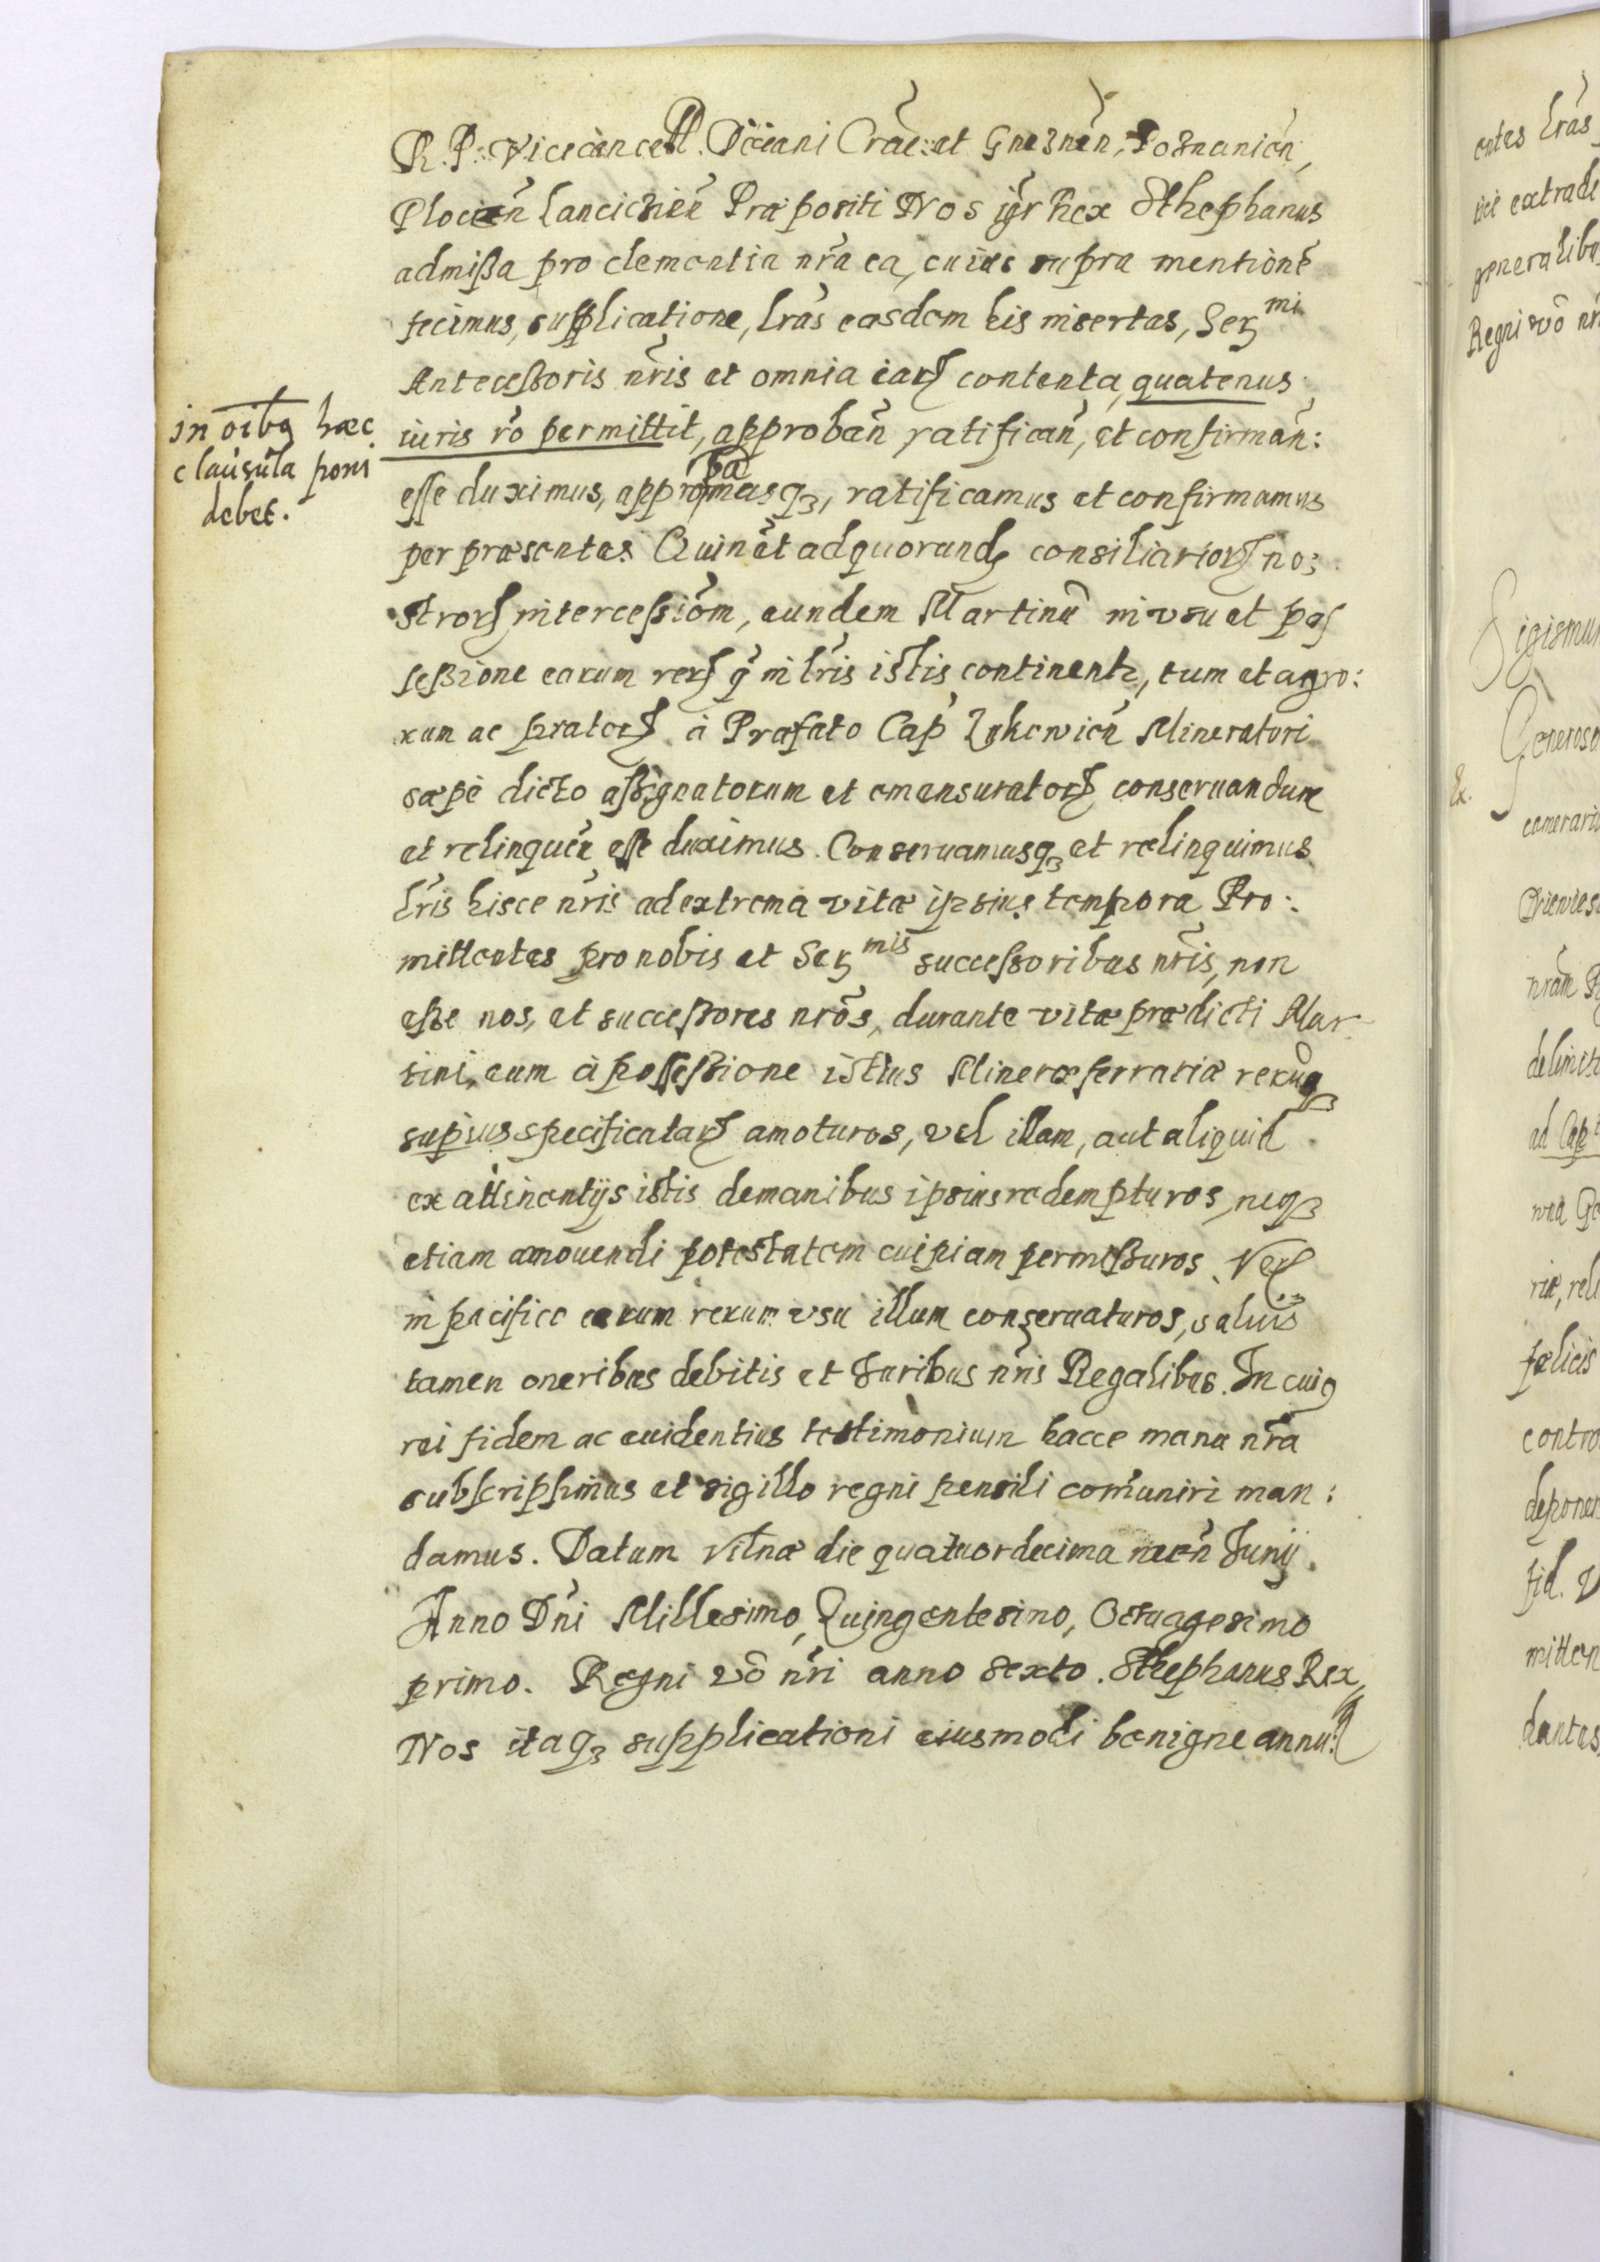 R. P. Vicecancell. Decani Crac: et Gneznen̄, Posnanien̄,
Plocen̄ Lancicien̄ Præpositi Nos igr̄ Rex Sthephanus
admißa pro clementia nr̄a ea, cuius supra mentionē
fecimus, supplicatione, lr̄as easdem his insertas, Ser^mi
Anteceßoris nr̄is et omnia earꝝ contenta, quatenus
iuris rō permittit, approban̄ ratifican̄, et confirman̄:
esse duximus, approbamusqꝫ, ratificamus et confirmamus
per præsentes. Quin et ad quorundꝫ consiliariorꝝ no:
strorꝝ intercessiōm, eundem Martinū in vsu et pos
seßione earum rerꝝ q̄ in lr̄is istis continentr, tum et agro:
rum ac pratorꝝ à Præfato Cap̄ Mineratori
sæpè dicto aßignatorum et emensuratorꝝ conseruandum
et relinquen̄ esse duximus. Conseruamusqꝫ et relinquimus
lr̄is hisce nr̄is ad extrema vitæ ipsius tempora Pro:
mittentes pro nobis et Ser^mis successoribus nr̄is, non
eße nos, et succeßores nr̄os, durante vita prædicti Mar
tini, eum à possessione istius Mineræ ferrariæ rerūqꝫ
supius specificatarꝝ amoturos, vel illam, aut aliquid
ex attinentijs istis de manibus ipsius redempturos, neqꝫ
etiam amouendi potestatem cuipiam permißuros. Verꝝ
in pacifico earum rerum vsu illum conseruaturos, saluis
tamen oneribus debitis et Juribus nr̄is Regalibus. In cuiꝯ
rei fidem ac euidentius testimonium hacce manu nr̄a
subscripsimus et sigillo regni pensili com̄uniri man:
damus. Datum Vilnæ die quatuordecima men̄ Junij.
Anno Dn̄i Millesimo, Quingentesimo, Octuagesimo
primo. Regni vō nr̄i anno sexto. Sthephanus Rex,
Nos itaqꝫ supplicationi eiusmodi benigne annu:
in oībꝯ hæc
clausula poni
debet.
entes lr̄as
generalibu
Regni vō nr̄
Sigismun
Generoso
Ex.
camerario
nr̄am
ad Cap
felicis
contro
deponen
fid.
mitten
dantes